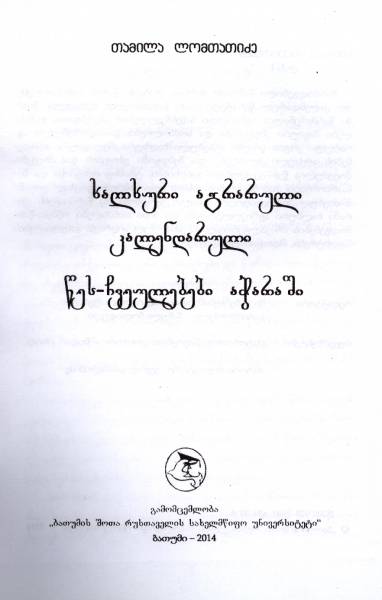 თამილა ლომთათიძე
ხალხური აგრარული
კალენდარული
წეს-ჩვეულებები აჭარაში
გამომცემლობა
„ბათუმის შოთა რუსთაველის სახელმწიფო უნივერსიტეტი“
ბათუმი – 2014